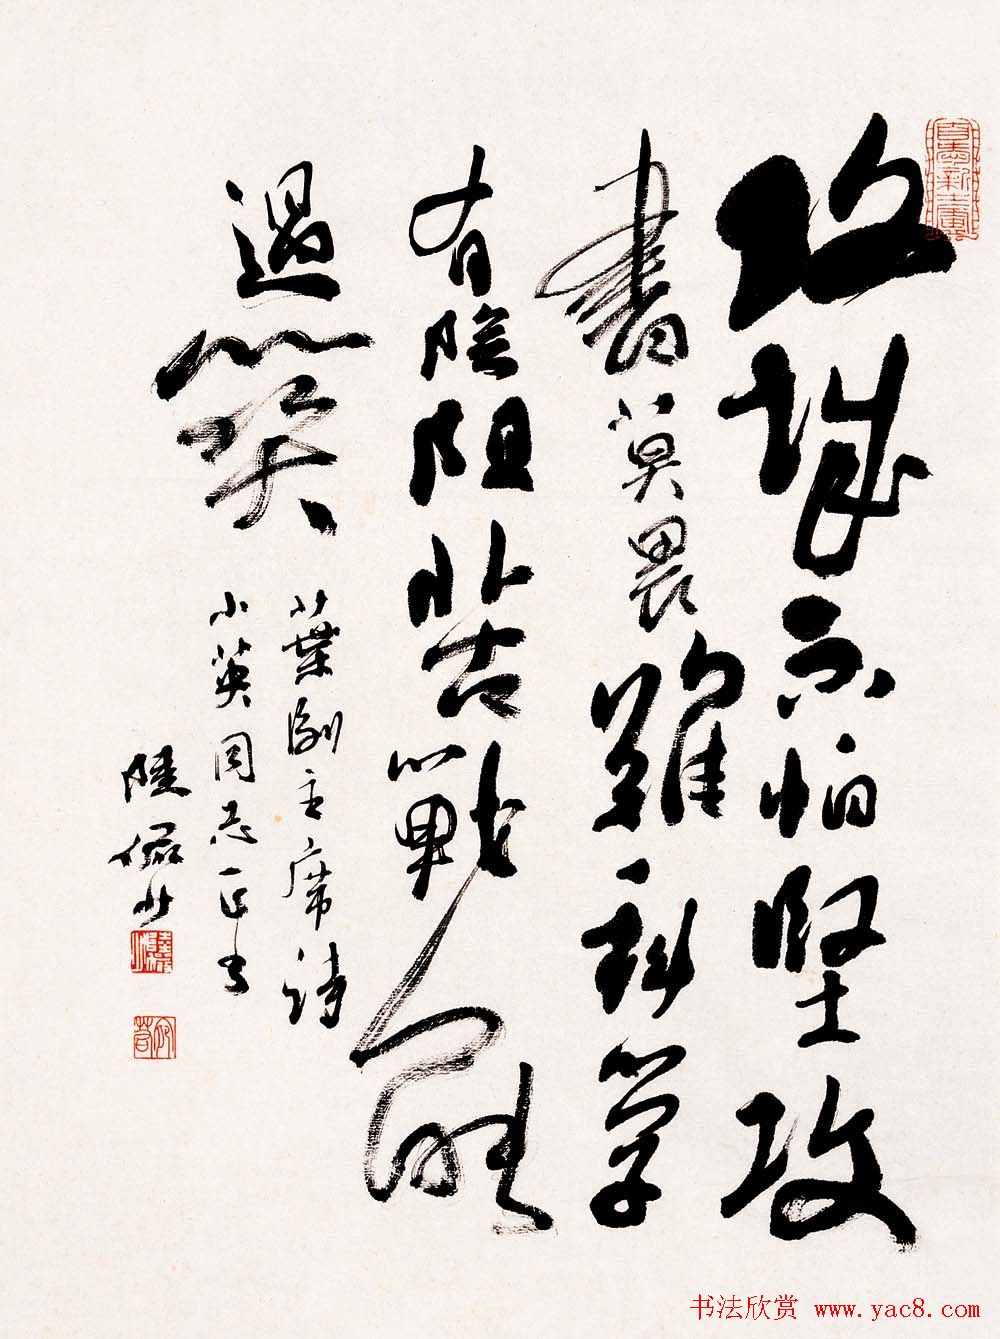 攻城不怕坚攻
書莫畏難科学
有险阻苦戰能
過关
葉副主席诗
小英同志正書
陸儼少
书法欣赏 www.yac8.com